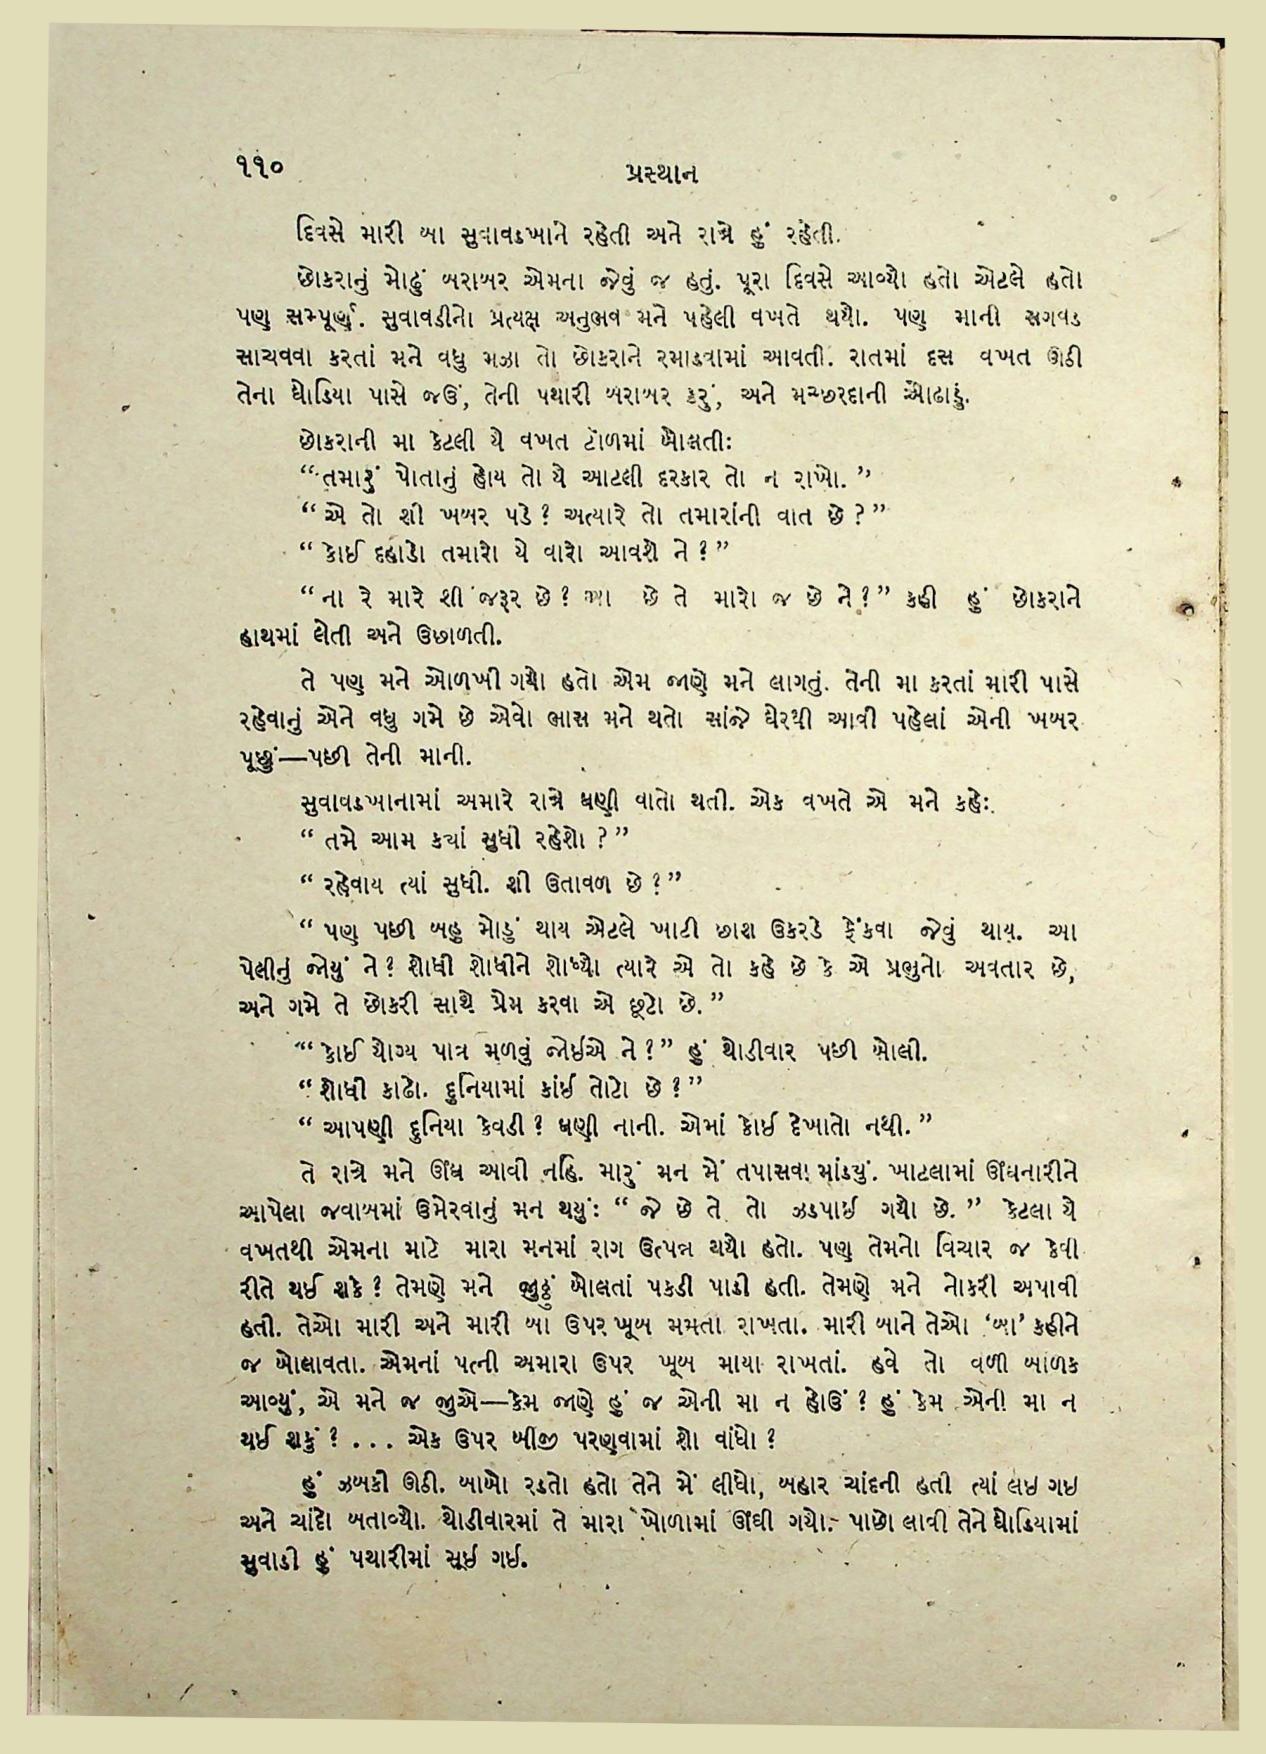 ૧૧૦
પ્રસ્થાન
દિવસે મારી બા સુવાવડખાને રહેતી અને રાત્રે હું રહેતી.
છોકરાનું મોઢું બરાબર એમના જેવું જ હતું. પૂરા દિવસે આવ્યો હતો એટલે હતો
પણ સમ્પૂર્ણ. સુવાવડીનો પ્રત્યક્ષ અનુભવ મને પહેલી વખતે થયો. પણ માની સગવડ
સાચવવા કરતાં મને વધુ મઝા તો છોકરાને રમાડવામાં આવતી. રાતમાં દસ વખત ઊઠી
તેના ઘોડિયા પાસે જઉં, તેની પથારી બરાબર કરું, અને મચ્છરદાની ઓઢાડું.
છોકરાની મા કેટલી યે વખત ટોળમાં બોલતી:
“તમારું પોતાનું હોય તો યે આટલી દરકાર તો ન રાખો.”
“એ તો શી ખબર પડે? અત્યારે તો તમારાંની વાત છે?”
“કોઈ દહાડો તમારો યે વારો આવશે ને?”
“ના રે મારે શી જરૂર છે? આ છે તે મારો જ છે ને?” કહી હું છોકરાને
હાથમાં લેતી અને ઉછાળતી.
તે પણ મને ઓળખી ગયો હતો એમ જાણે મને લાગતું. તેની મા કરતાં મારી પાસે
રહેવાનું એને વધુ ગમે છે એવો ભાસ મને થતો સાંજે ઘેરથી આવી પહેલાં એની ખબર
પૂછું—પછી તેની માની.
સુવાવડખાનામાં અમારે રાત્રે ઘણી વાતો થતી. એક વખતે એ મને કહે:
“તમે આમ ક્યાં સુધી રહેશો?”
“રહેવાય ત્યાં સુધી. શી ઉતાવળ છે?”
“પણ પછી બહુ મોડું થાય એટલે ખાટી છાશ ઉકરડે ફેંકવા જેવું થાય. આ
પેલીનું જોયું ને? શોધી શોધીને શોધ્યો ત્યારે એ તો કહે છે કે એ પ્રભુનો અવતાર છે,
અને ગમે તે છોકરી સાથે પ્રેમ કરવા એ છૂટો છે.”
“કોઈ યોગ્ય પાત્ર મળવું જોઇએ ને?” હું થોડીવાર પછી બોલી.
“શોધી કાઢો. દુનિયામાં કાંઈ તોટો છે?”
“આપણી દુનિયા કેવડી? ઘણી નાની. એમાં કોઈ દેખાતો નથી.”
તે રાત્રે મને ઊંઘ આવી નહિ. મારું મન મેં તપાસવા માંડયું. ખાટલામાં ઊંઘનારીને
આપેલા જવાબમાં ઉમેરવાનું મન થયું: “જે છે તે તો ઝડપાઈ ગયો છે.” કેટલા યે
વખતથી એમના માટે મારા મનમાં રાગ ઉત્પન્ન થયો હતો. પણ તેમનો વિચાર જ કેવી
રીતે થઈ શકે? તેમણે મને જુઠ્ઠું બોલતાં પકડી પાડી હતી. તેમણે મને નોકરી અપાવી
હતી. તેઓ મારી અને મારી બા ઉપર ખૂબ મમતા રાખતા. મારી બાને તેઓ ‘બા’ કહીને
જ બોલાવતા. એમનાં પત્ની અમારા ઉપર ખૂબ માયા રાખતાં. હવે તો વળી બાળક
આવ્યું, એ મને જ જુએ—કેમ જાણે હું જ એની મા ન હોઉં? હું કેમ એની મા ન
થઈ શકું? ... એક ઉપર બીજી પરણવામાં શો વાંધો?
હું ઝબકી ઊઠી. બાબો રડતો હતો તેને મેં લીધો, બહાર ચાંદની હતી ત્યાં લઇ ગઇ
અને ચાંદો બતાવ્યો. થોડીવારમાં તે મારા ખોળામાં ઊંઘી ગયો. પાછો લાવી તેને ઘોડિયામાં
સુવાડી હું પથારીમાં સૂઈ ગઈ.